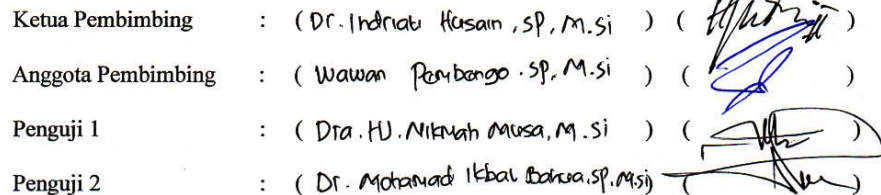 Ketua Pembimbing : ( Dr. Indriati Husain, SP, M.Si ) ( )
Anggota Pembimbing : ( Wawan Pembengo. SP, M.Si ) ( )
Penguji 1 : ( Dra. HJ. Nikmah Musa, M.Si ) ( )
Penguji 2 : ( Dr. Mohamad Ikbal Bahua, SP, M.Si) ( )